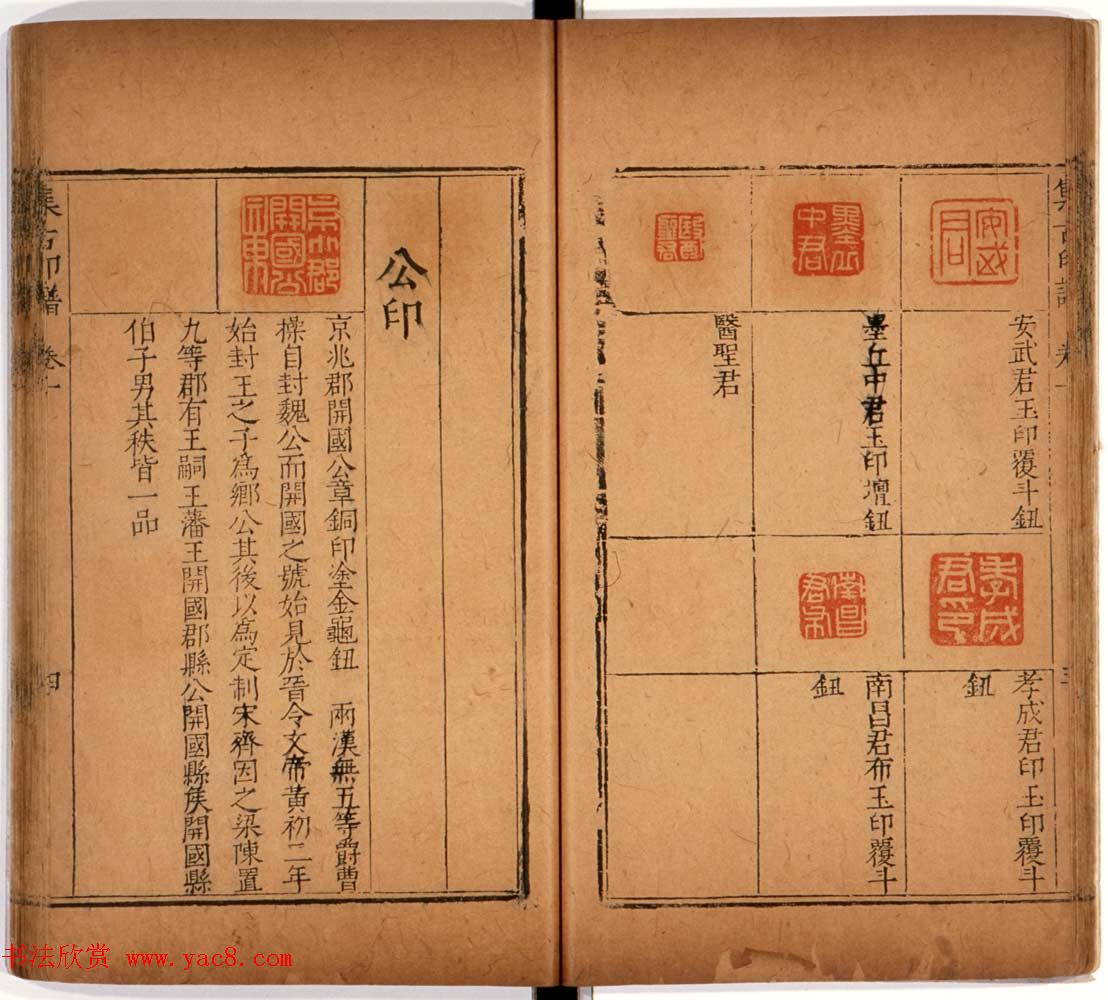 集古印譜 卷一 三
安武君
安武君玉印覆斗鈕
墨丘中君玉印壇鈕
醫聖君
孝成君印
孝成君印玉印覆斗
鈕
南昌君布玉印覆斗
鈕
公印
京兆郡開國公章
京兆郡開國公章銅印塗金龜鈕 兩漢無五等爵曹
操自封魏公而開國之號始見於晉令文帝黃初二年
始封王之子為鄉公其後以為定制宋齊因之梁陳置
九等郡有王嗣王藩王開國郡縣公開國縣侯開國縣
伯子男其秩皆一品
集古印譜 卷一 四
书法欣赏 www.yac8.com